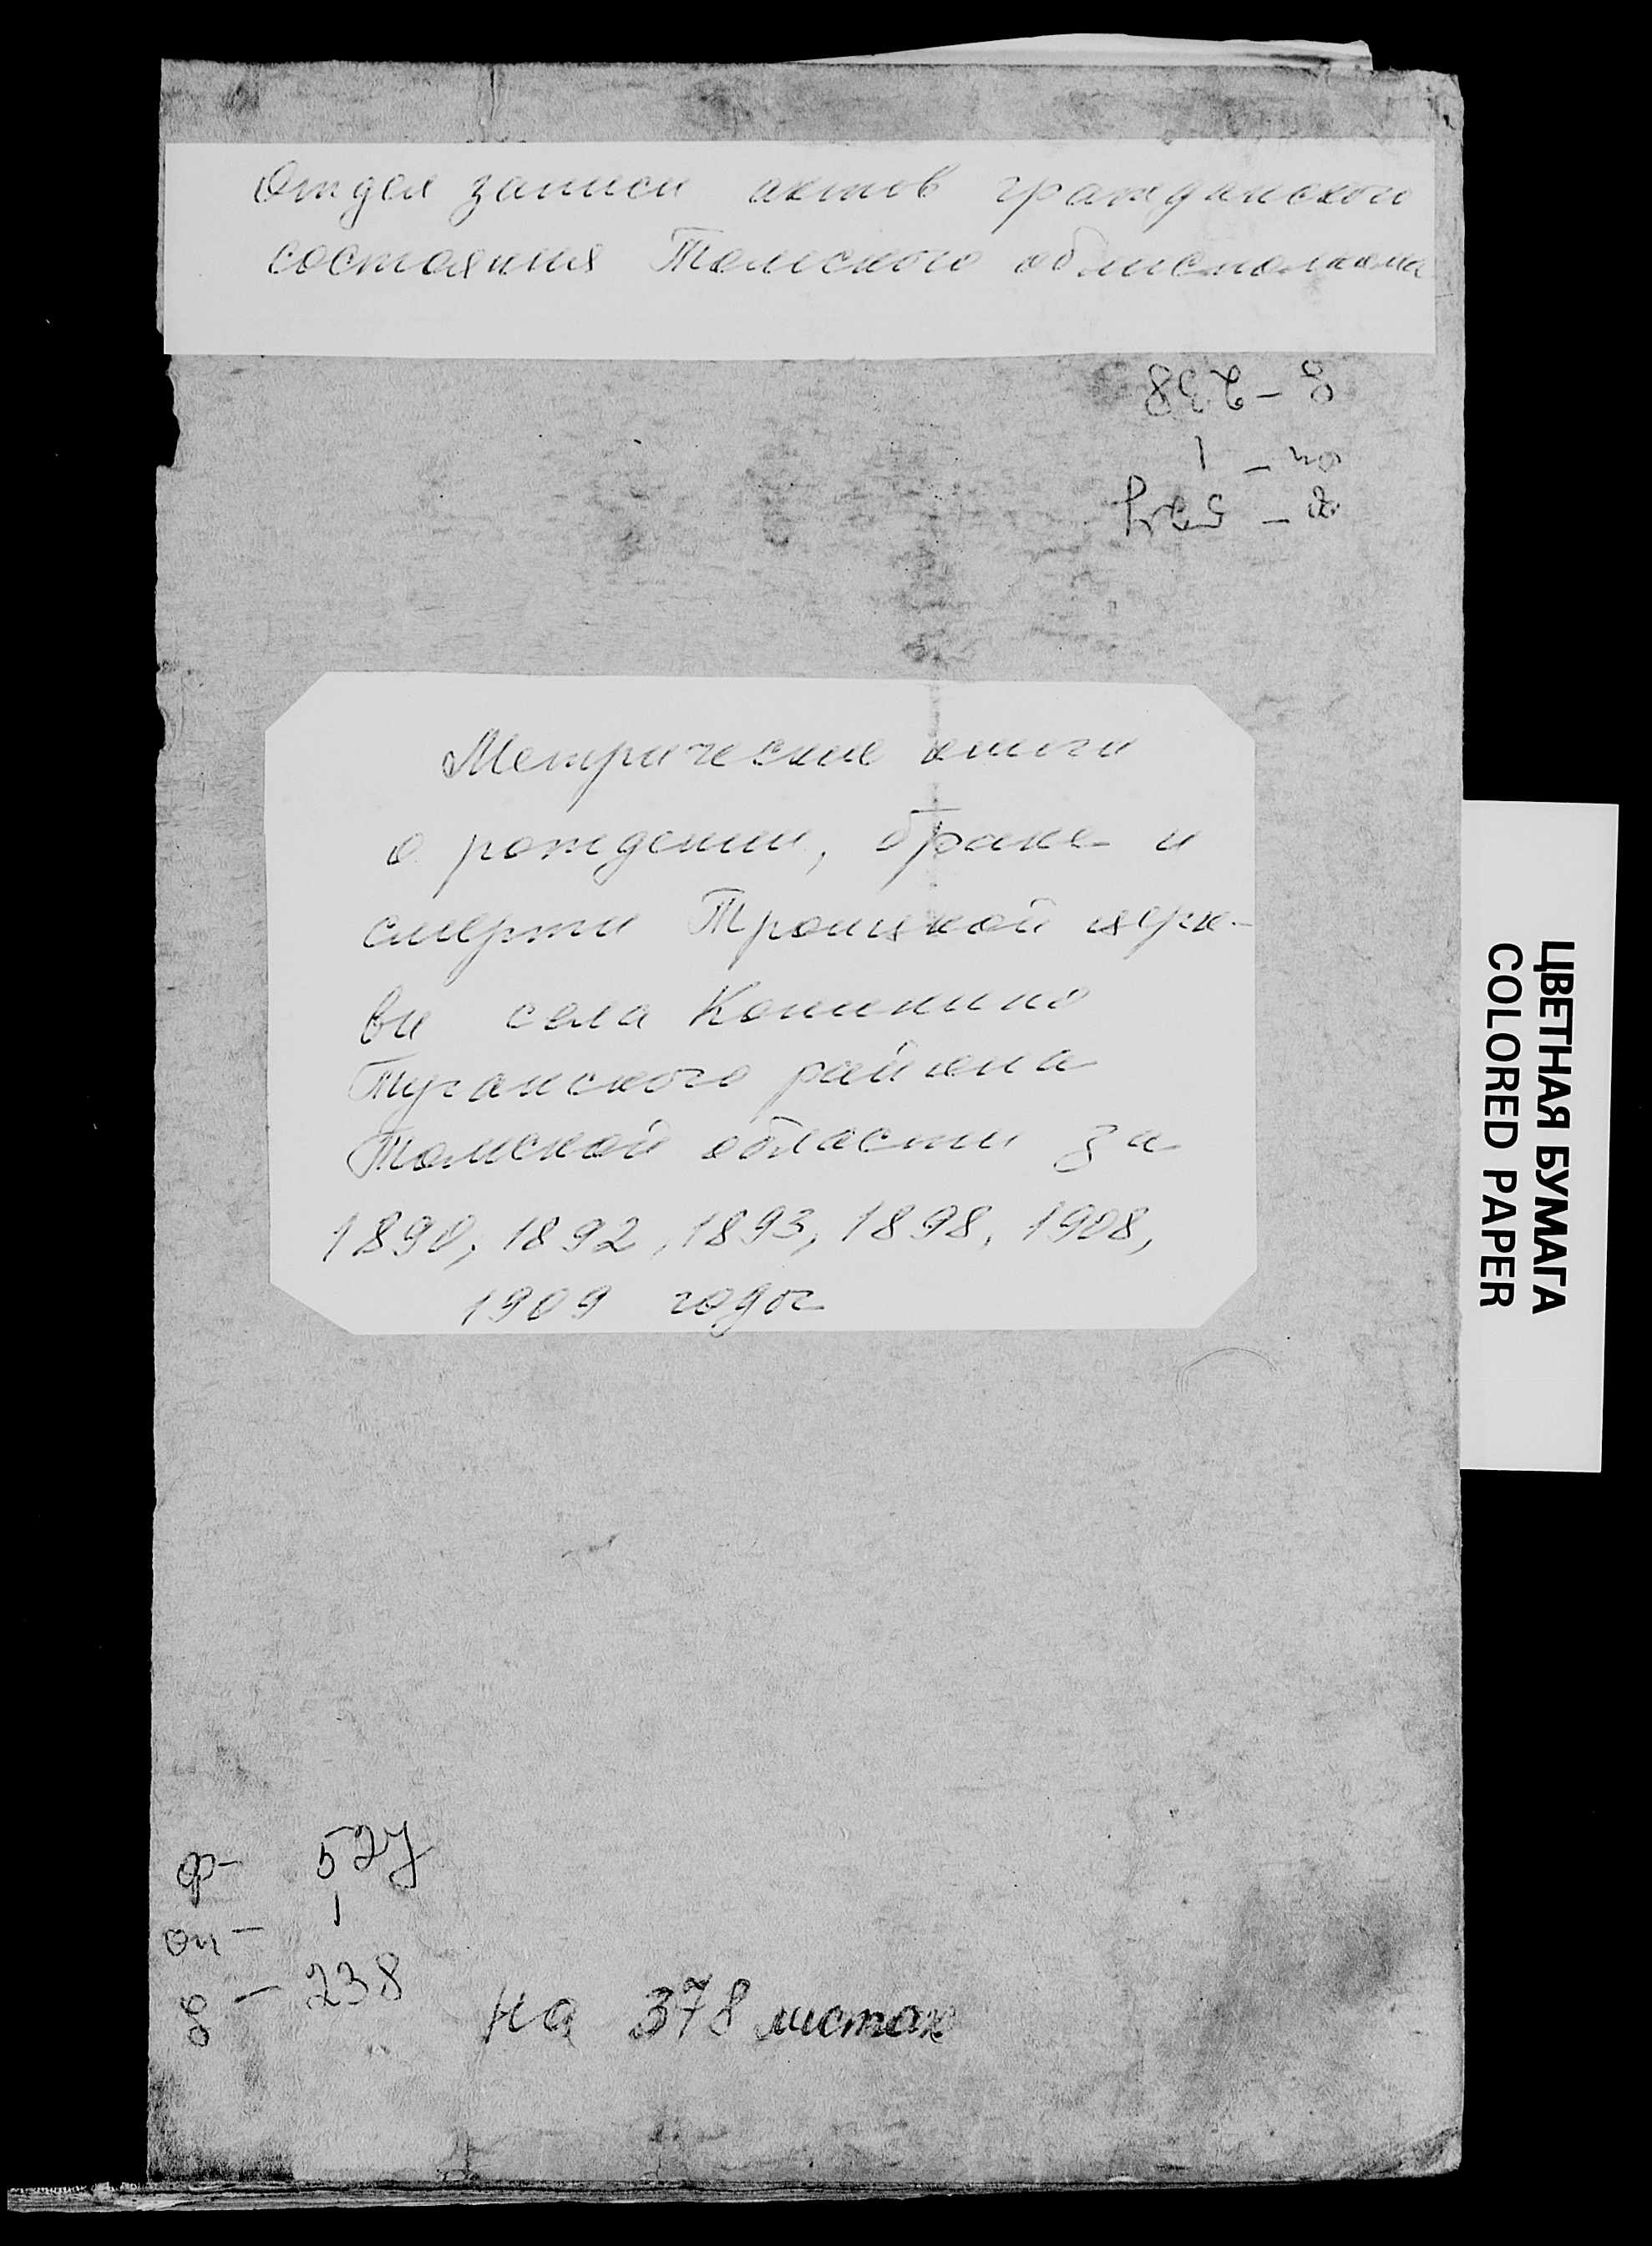 Отдел записи актов гражданского
состояния Томского облисполкома
д - 238
оп - 1
ф - 527
Метрические книги
о рождении, браке и
смерти Троицкой церк-
ви села
Туганского района
Томской области за
1890, 1892, 1893, 1898, 1908,
1909 года
ЦВЕТНАЯ БУМАГА
COLORED PAPER
ф- 527
оп - 1
д - 238
на 378 листах